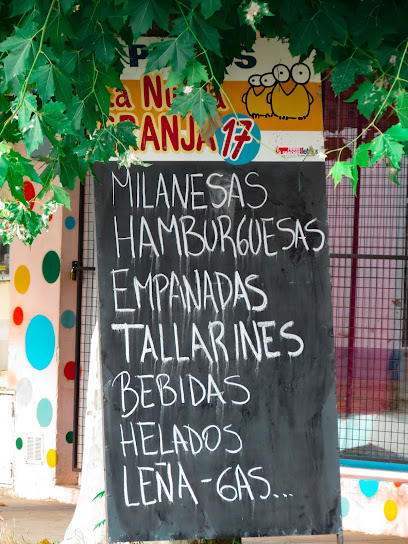 La Nueva
GRANJA 17
MILANESAS
HAMBURGUESAS
EMPANADAS
TALLARINES
BEBIDAS
HELADOS
LEÑA-GAS...